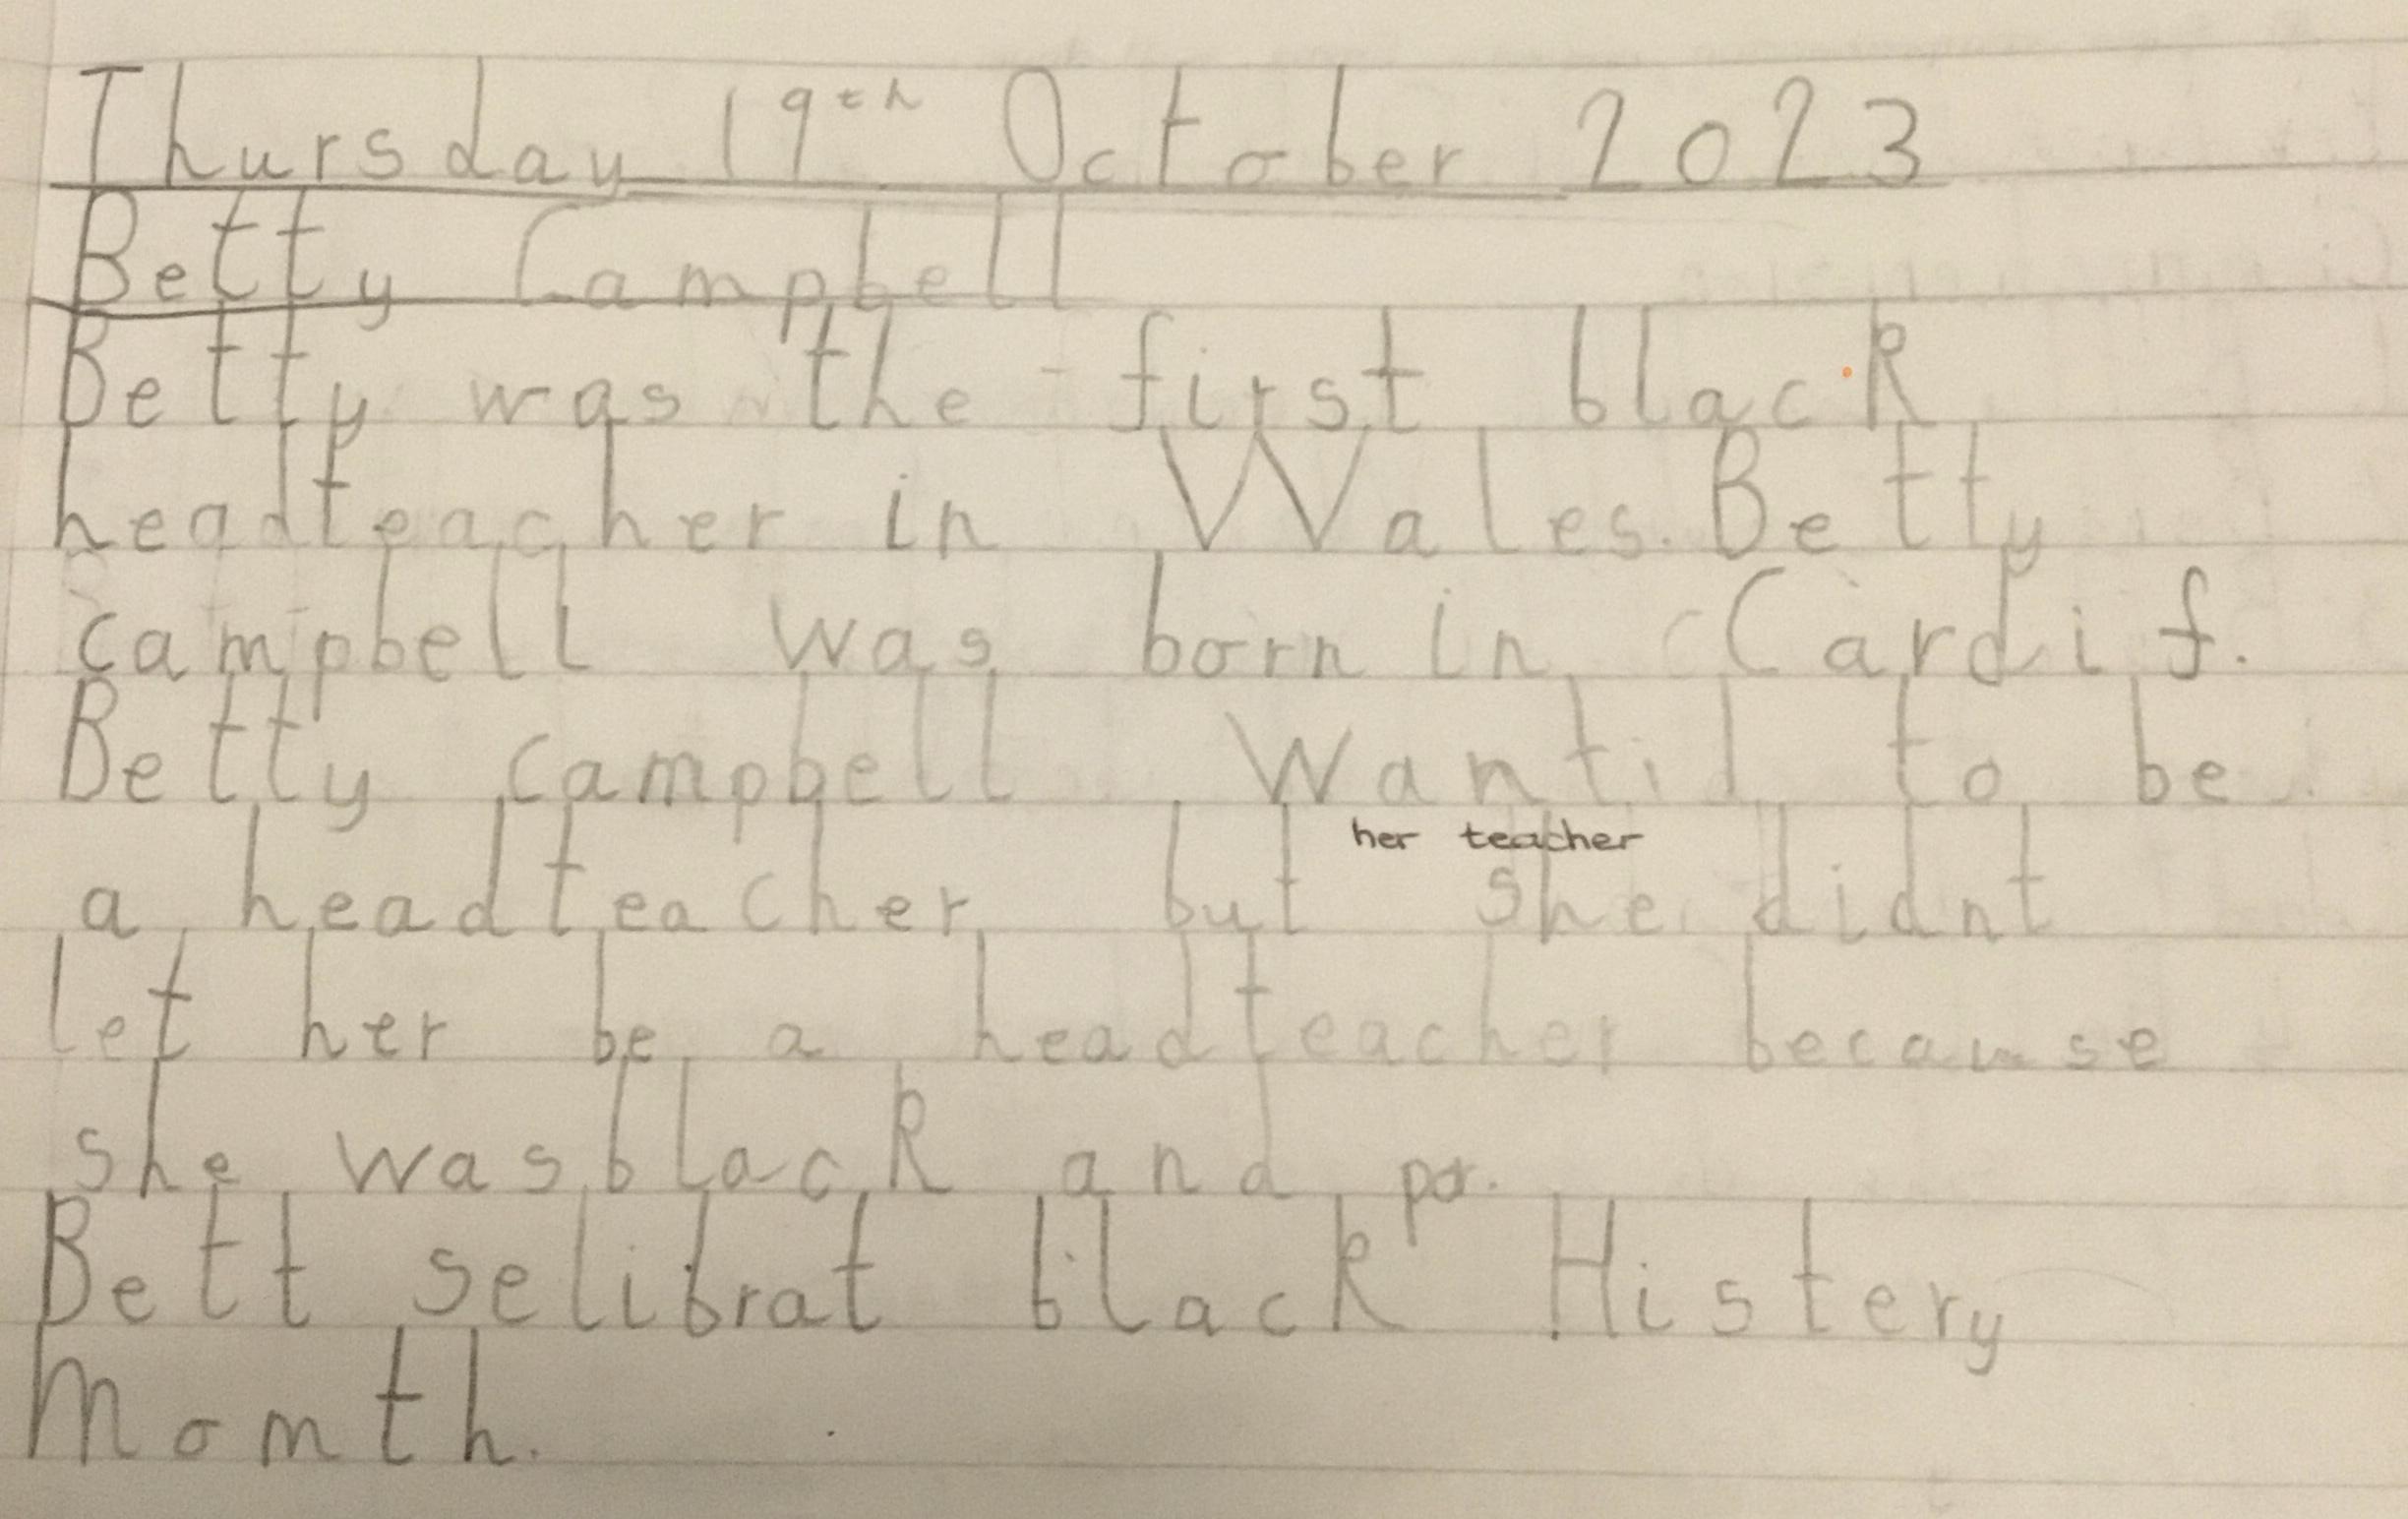 Thursday 19th October 2023
Betty Campbell
Betty was the first black
headteacher in Wales. Betty
campbell was born in Cardif.
Betty campbell Wantid to be
her teacher
a headteacher but she didnt
let her be a headteacher because
she was black and por.
Bett selibrat black Histery
Momth.